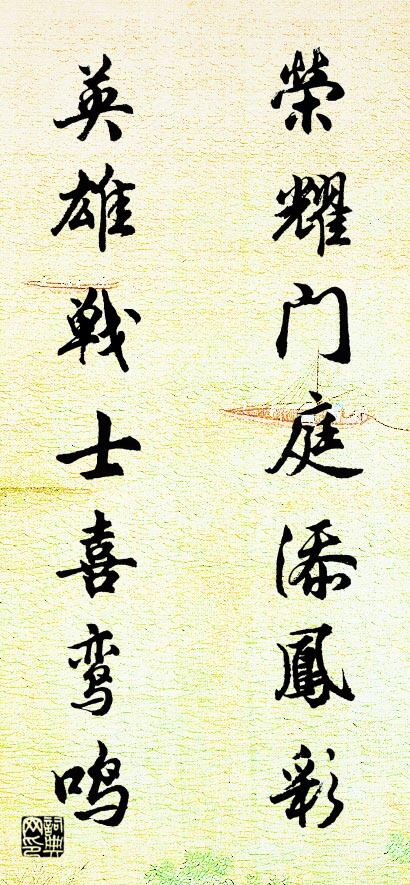 榮耀门庭添鳳彩
英雄戦士喜鸾鸣
詞典网印